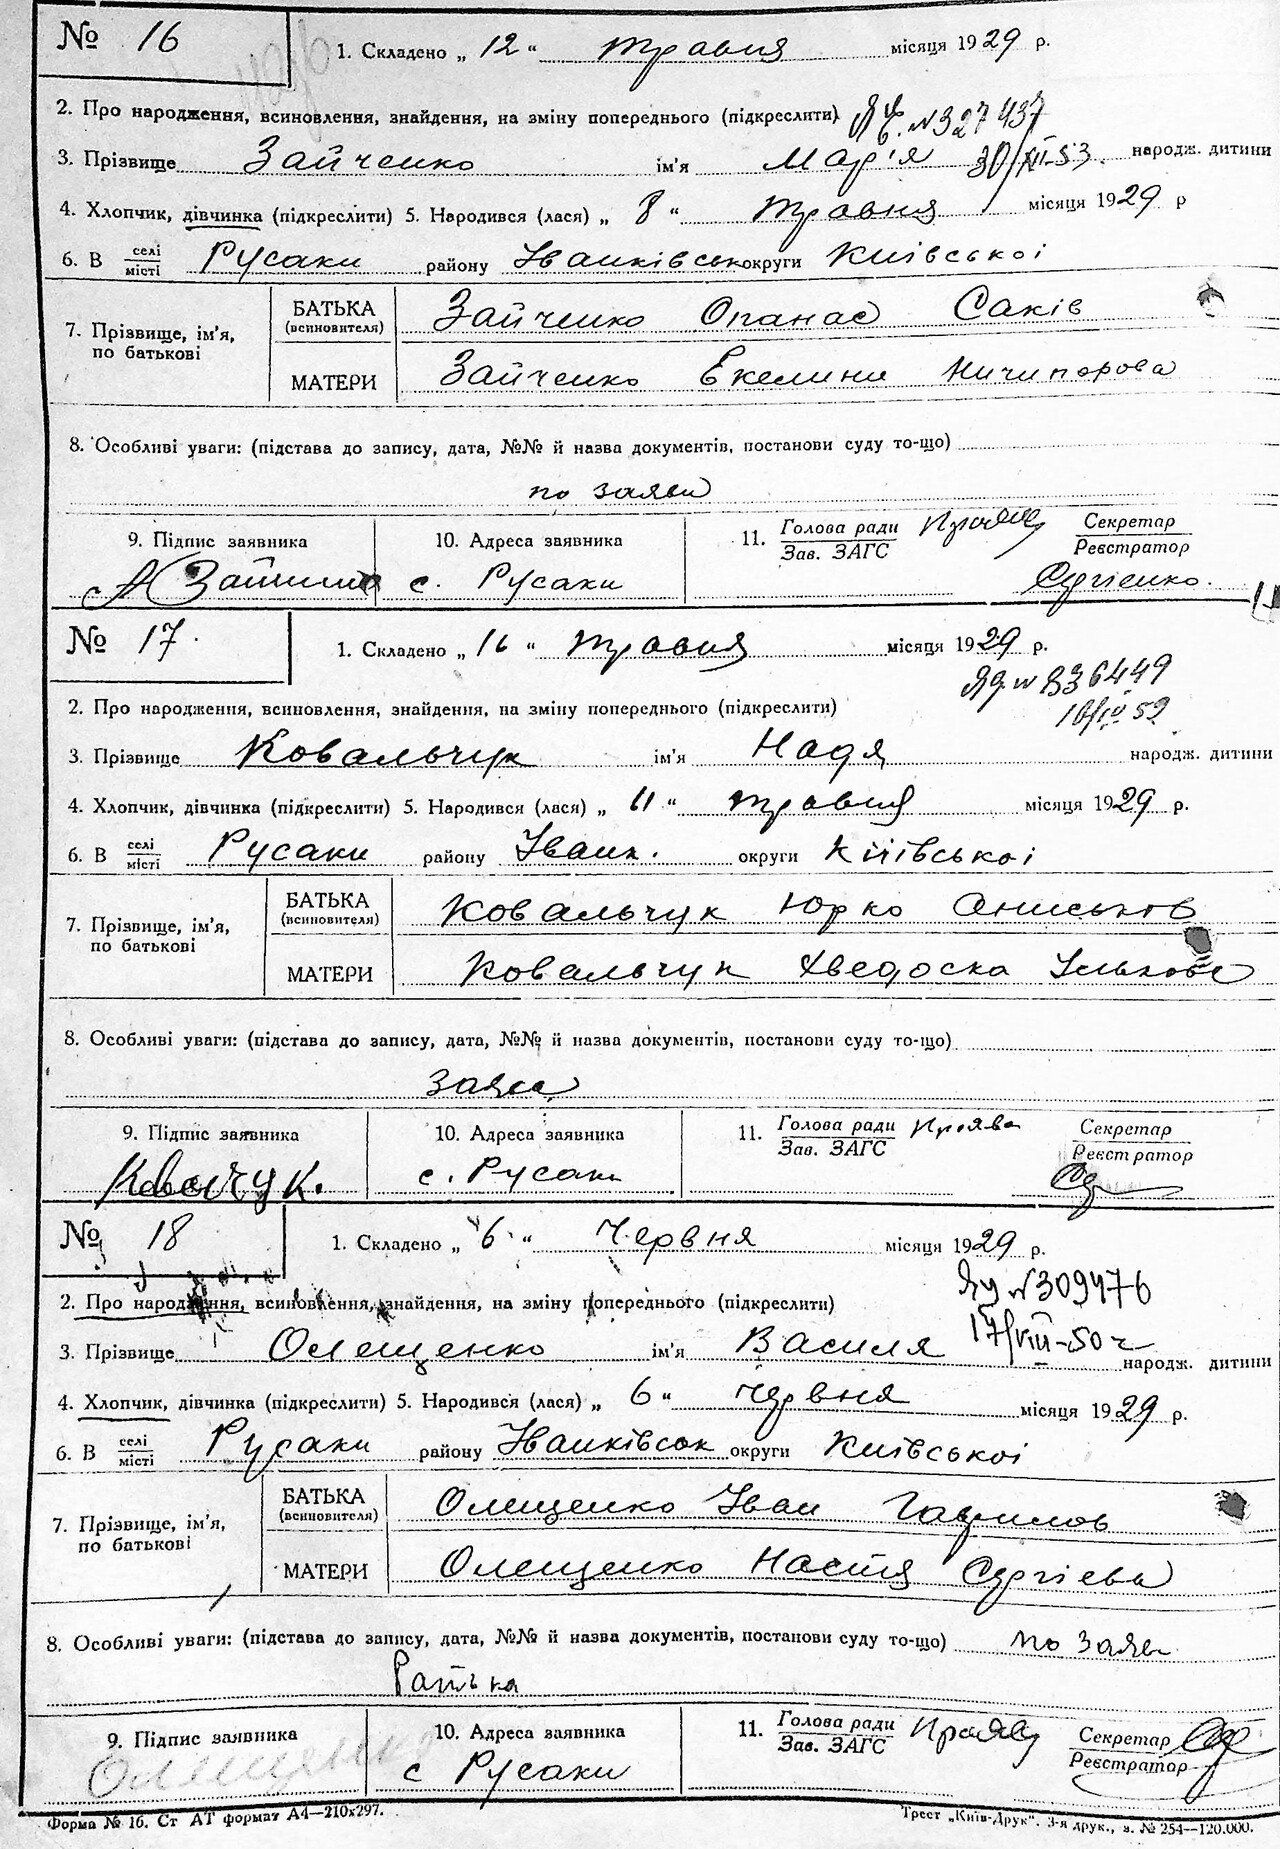 № 16
1. Складено „ 12 “ травня місяця 1929 р.
2. Про народження, всиновлення, знайдення, на зміну попереднього (підкреслити)
№ 327437
3. Прізвище Зайченко ім'я Марія народж. дитини
30/XII-53.
4. Хлопчик, дівчинка (підкреслити) 5. Народився (лася) „ 8 “ травня місяця 1929 р
6. В селі/місті Русаки району Іванківськ округи Київської
7. Прізвище, ім'я, по батькові
БАТЬКА (всиновителя) Зайченко Опанас Саків
МАТЕРИ Зайченко Екелини Ничипорова
8. Особливі уваги: (підстава до запису, дата, №№ й назва документів, постанови суду то-що)
по заяви
9. Підпис заявника 10. Адреса заявника 11. Голова ради Секретар
Зав. ЗАГС Реєстратор
с. Русаки Сергієнко.
№ 17.
1. Складено „ 16 “ травня місяця 1929 р.
№ 836449
2. Про народження, всиновлення, знайдення, на зміну попереднього (підкреслити)
16/IV 52
3. Прізвище Ковальчук ім'я Надя народж. дитини
4. Хлопчик, дівчинка (підкреслити) 5. Народився (лася) „ 11 “ травня місяця 1929 р.
6. В селі/місті Русаки району Іванк. округи Київської
7. Прізвище, ім'я, по батькові
БАТЬКА (всиновителя) Ковальчук Юрко Аниськов
МАТЕРИ Ковальчук Хведоска Ількова
8. Особливі уваги: (підстава до запису, дата, №№ й назва документів, постанови суду то-що)
заява
9. Підпис заявника 10. Адреса заявника 11. Голова ради Секретар
Зав. ЗАГС Реєстратор
Ковальчук. с. Русаки
№ 18
1. Складено „ 6 “ Червня місяця 1929 р.
2. Про народження, всиновлення, знайдення, на зміну попереднього (підкреслити)
№ 309476
3. Прізвище Олещенко ім'я Василя народж. дитини
17/VIII-50 г
4. Хлопчик, дівчинка (підкреслити) 5. Народився (лася) „ 6 “ червня місяця 1929 р.
6. В селі/місті Русаки району Іванківськ округи Київської
7. Прізвище, ім'я, по батькові
БАТЬКА (всиновителя) Олещенко Іван Гаврилов
МАТЕРИ Олещенко Настя Сергієва
8. Особливі уваги: (підстава до запису, дата, №№ й назва документів, постанови суду то-що) по заяв
батька
9. Підпис заявника 10. Адреса заявника 11. Голова ради Секретар
Зав. ЗАГС Реєстратор
Олещенко с Русаки
Форма № 16. Ст АТ формат А4—210х297.
Трест „Київ-Друк“. 3-я друк., з. № 254—120.000.